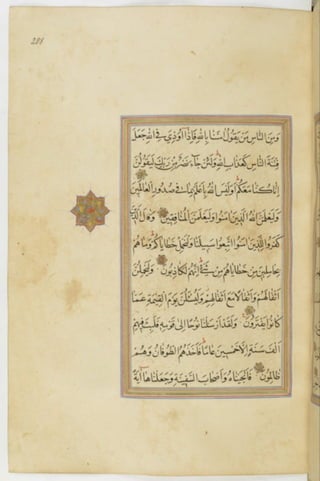 288
وَمِنَ النَّاسِ مَنْ يَقُولُ آمَنَّا بِاللَّهِ فَإِذَا أُوذِيَ فِي اللَّهِ جَعَلَ
فِتْنَةَ النَّاسِ كَعَذَابِ اللَّهِ وَلَئِنْ جَاءَ نَصْرٌ مِنْ رَبِّكَ لَيَقُولُنَّ
إِنَّا كُنَّا مَعَكُمْ أَوَلَيْسَ اللَّهُ بِأَعْلَمَ بِمَا فِي صُدُورِ الْعَالَمِينَ
وَلَيَعْلَمَنَّ اللَّهُ الَّذِينَ آمَنُوا وَلَيَعْلَمَنَّ الْمُنَافِقِينَ وَقَالَ الَّذِينَ
كَفَرُوا لِلَّذِينَ آمَنُوا اتَّبِعُوا سَبِيلَنَا وَلْنَحْمِلْ خَطَايَاكُمْ وَمَا هُمْ
بِحَامِلِينَ مِنْ خَطَايَاهُمْ مِنْ شَيْءٍ إِنَّهُمْ لَكَاذِبُونَ وَلَيَحْمِلُنَّ
أَثْقَالَهُمْ وَأَثْقَالًا مَعَ أَثْقَالِهِمْ وَلَيُسْئَلُنَّ يَوْمَ الْقِيٰمَةِ عَمَّا
كَانُوا يَفْتَرُونَ وَلَقَدْ أَرْسَلْنَا نُوحًا إِلَى قَوْمِهِ فَلَبِثَ فِيهِمْ
أَلْفَ سَنَةٍ إِلَّا خَمْسِينَ عَامًا فَأَخَذَهُمُ الطُّوفَانُ وَهُمْ
ظَالِمُونَ فَأَنْجَيْنَاهُ وَأَصْحَابَ السَّفِينَةِ وَجَعَلْنَاهَا آيَةً